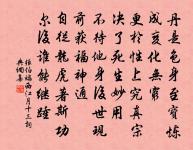 丹是色身至寶煉
成變化無窮
更於性上究真宗
决了死生妙用
不待他身後世現
前獲福神通
自從龍虎著斯功
尔後誰能繼踵
張伯端西江月十三詞